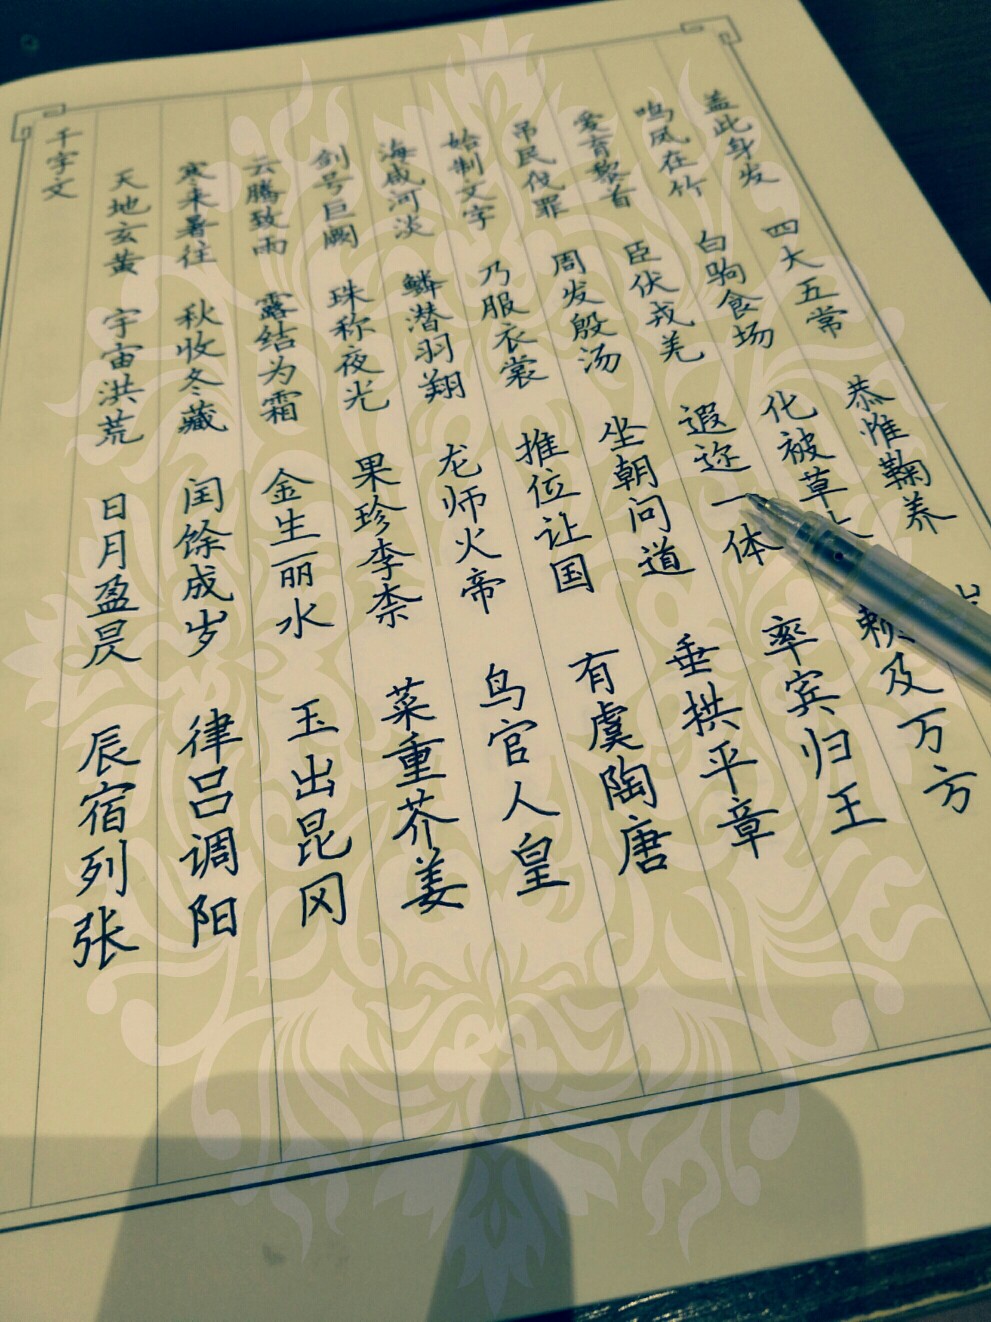 千字文
天地玄黄 宇宙洪荒 日月盈昃 辰宿列张
寒来暑往 秋收冬藏 闰馀成岁 律吕调阳
云腾致雨 露结为霜 金生丽水 玉出昆冈
剑号巨阙 珠称夜光 果珍李柰 菜重芥姜
海咸河淡 鳞潜羽翔 龙师火帝 鸟官人皇
始制文字 乃服衣裳 推位让国 有虞陶唐
吊民伐罪 周发殷汤 坐朝问道 垂拱平章
爱育黎首 臣伏戎羌 遐迩一体 率宾归王
鸣凤在竹 白驹食场 化被草 赖及万方
盖此身发 四大五常 恭惟鞠养